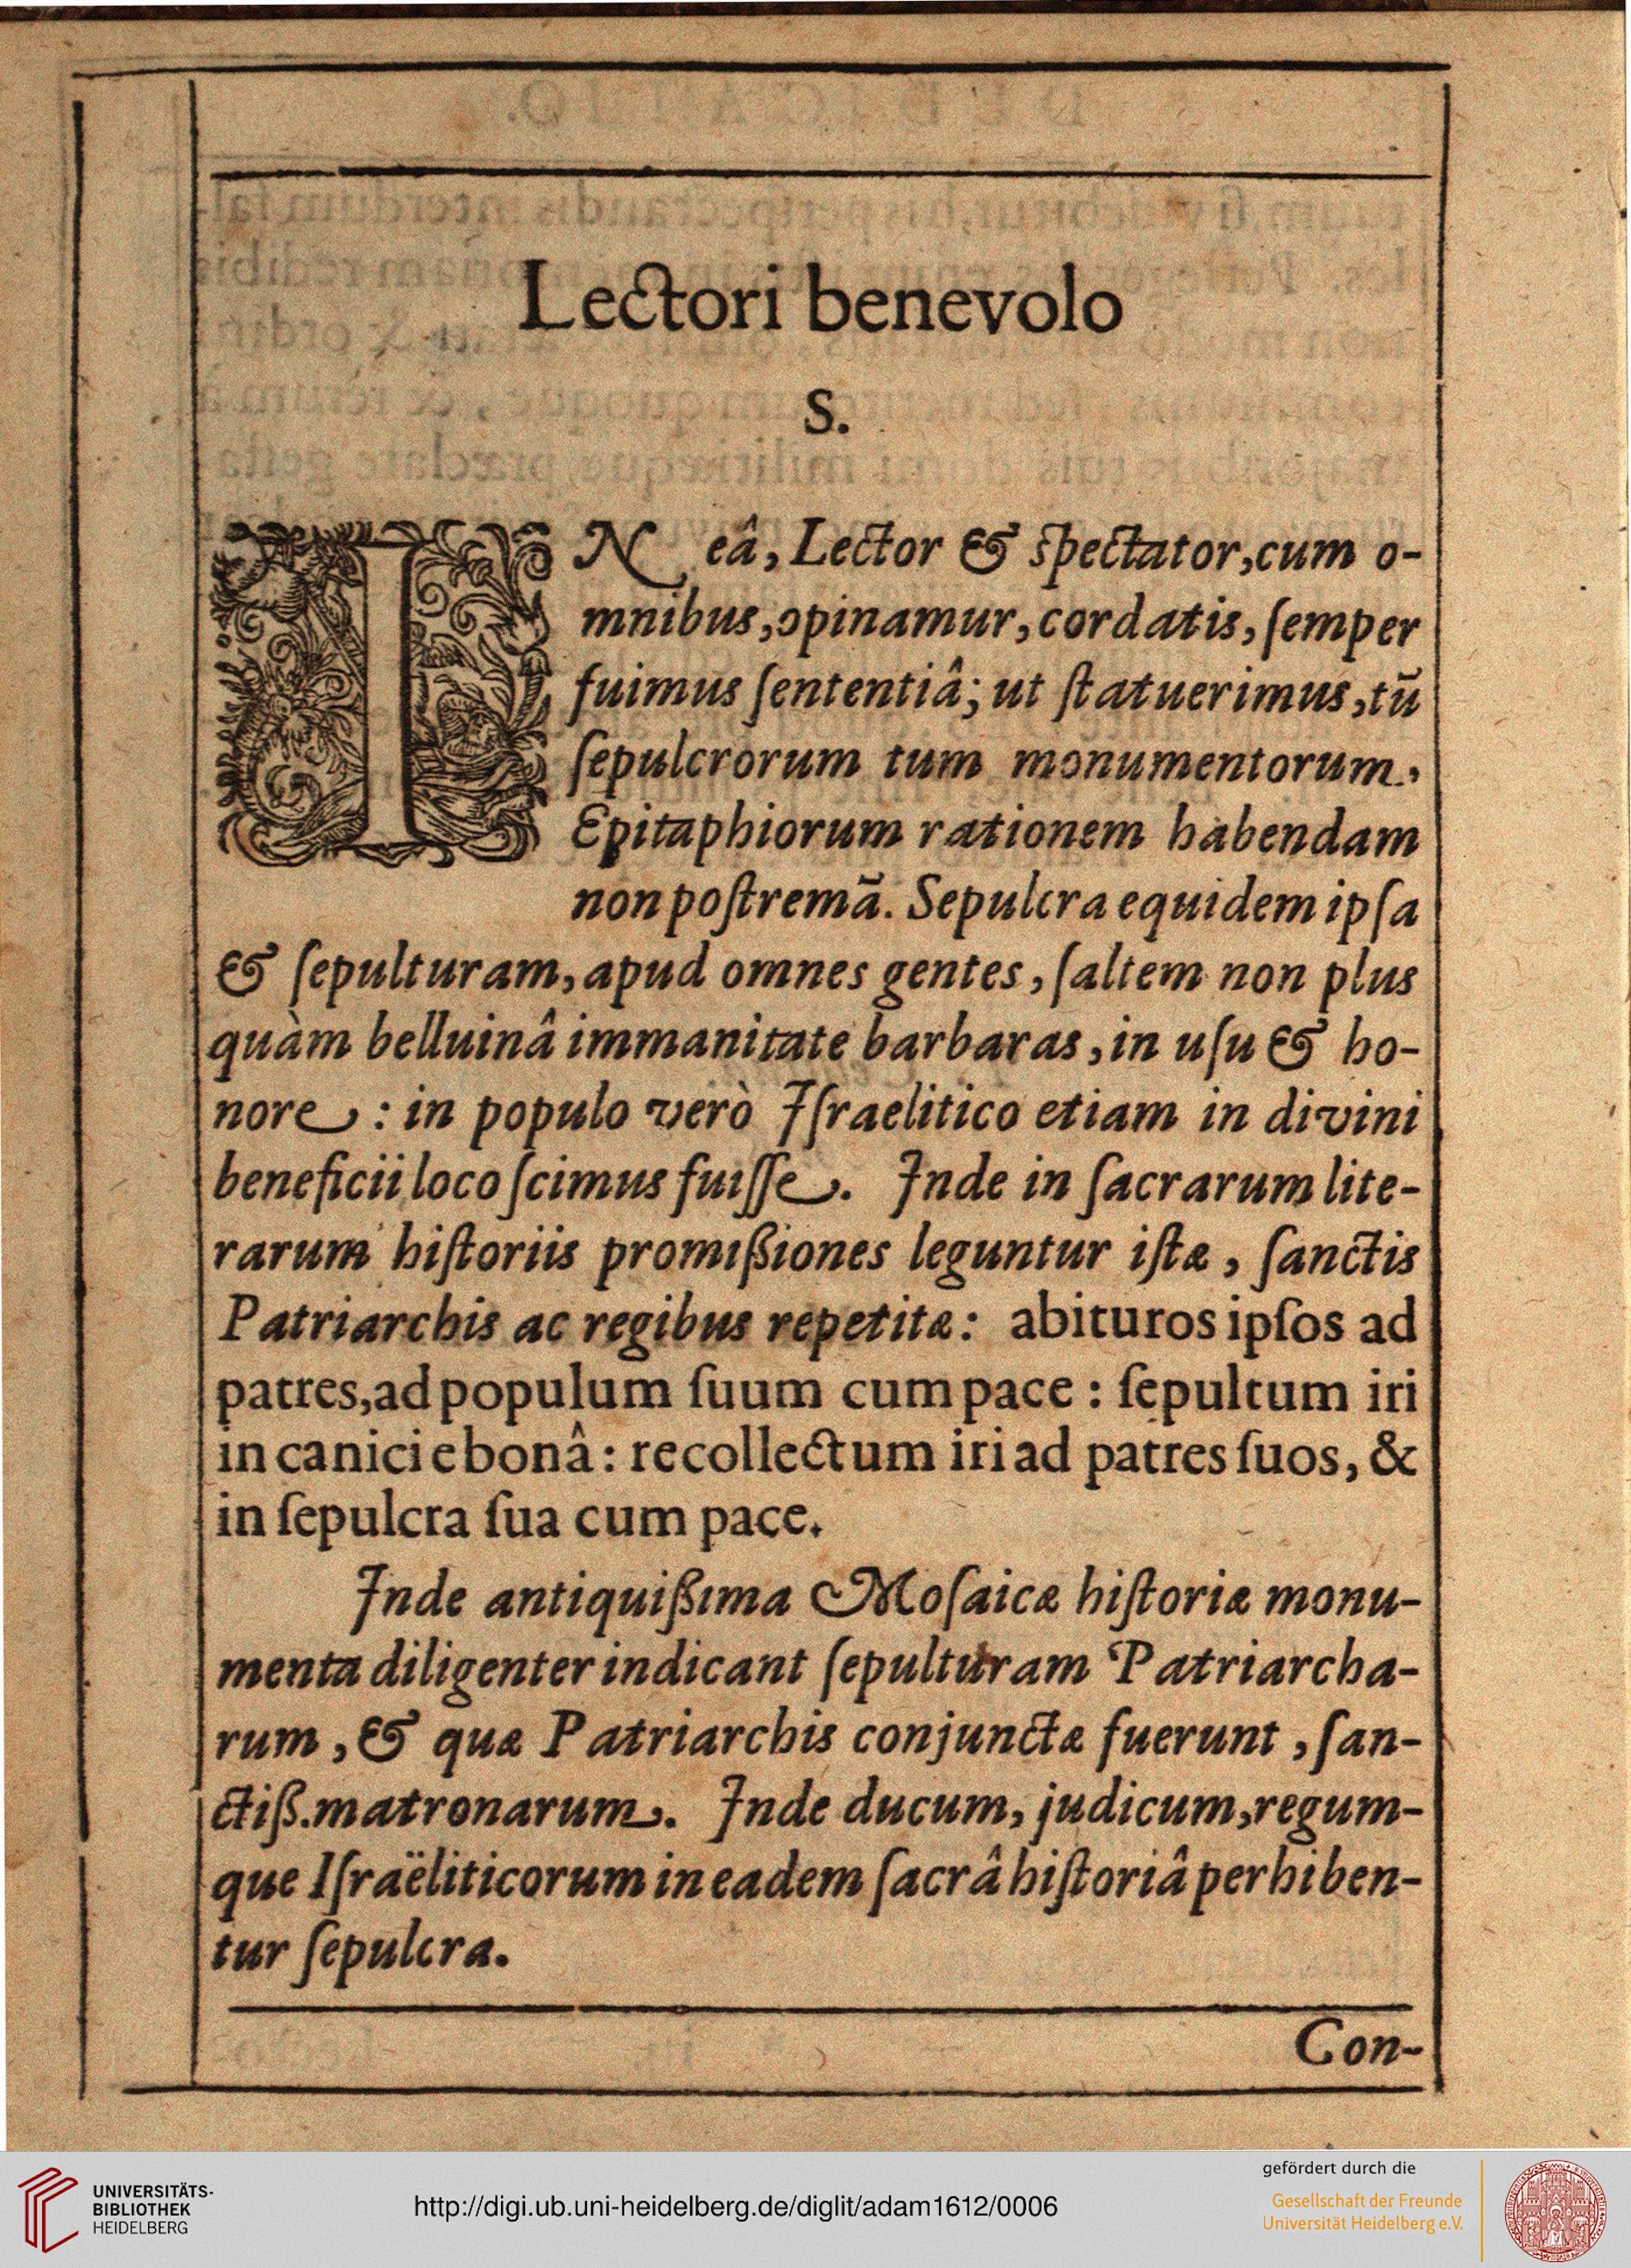 Lectori benevolo
S.
IN eâ, Lector & spectator, cum o-
mnibus, opinamur, cordatis, ſemper
fuimus ſententiâ; ut ſtatuerimus, tũ
ſepulcrorum tum monumentorum,
Epitaphiorum rationem habendam
non poſtremã. Sepulcra equidem ipſa
& ſepulturam, apud omnes gentes, ſaltem non plus
quàm belluinâ immanitate barbaras, in uſu & ho-
nore: in populo verò Iſraelitico etiam in divini
beneficii loco ſcimus fuiſſe. Inde in ſacrarum lite-
rarum hiſtoriis promißiones leguntur iſtæ, ſanctis
Patriarchis ac regibus repetitæ: abituros ipſos ad
patres, ad populum ſuum cum pace: ſepultum iri
in canicie bonâ: recollectum iri ad patres ſuos, &
in ſepulcra ſua cum pace.
Inde antiquißima Moſaicæ hiſtoriæ monu-
menta diligenter indicant ſepulturam Patriarcha-
rum, & quæ Patriarchis conjunctæ fuerunt, ſan-
ctiß. matronarum. Inde ducum, judicum, regum-
que Iſraëliticorum in eadem ſacrâ hiſtoriâ perhiben-
tur ſepulcra.
Con-
UNIVERSITÄTS-
BIBLIOTHEK
HEIDELBERG
http://digi.ub.uni-heidelberg.de/diglit/adam1612/0006
gefördert durch die
Gesellschaft der Freunde
Universität Heidelberg e.V.